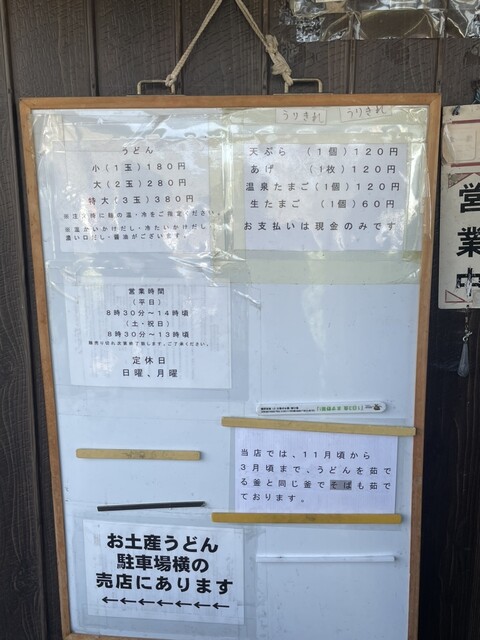 うりきれ
うりきれ
うどん
小(1玉)180円
大(2玉)280円
特大(3玉)380円
※注文時に麺の温・冷をご指定ください。
※温かいかけだし・冷たいかけだし
濃い口だし・醤油がございます。
天ぷら (1個)120円
あげ (1枚)120円
温泉たまご(1個)120円
生たまご (1個)60円
お支払いは現金のみです
営業中
営業時間
(平日)
8時30分~14時頃
(土・祝日)
8時30分~13時頃
麺売り切れ次第終了致します。ご了承ください。
定休日
日曜、月曜
当店では、11月頃から
3月頃まで、うどんを茹で
る釜と同じ釜でそばも茹で
ております。
お土産うどん
駐車場横の
売店にあります
←←←←←←←